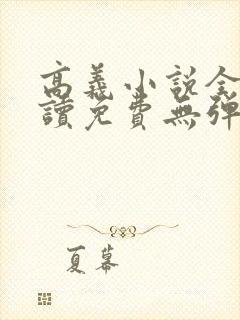 高義小說全
讀免費無彈
夏幕